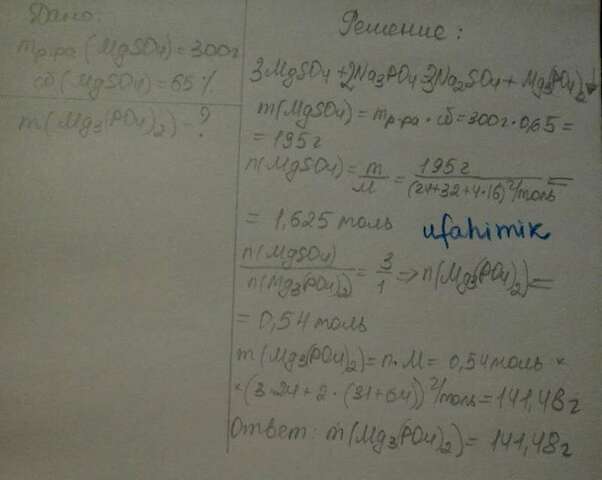 Дано:
mр-ра (MgSO4) = 300г
ω(MgSO4) = 65%
m(Mg3(PO4)2) - ?
Решение:
3MgSO4 + 2Na3PO4 3Na2SO4 + Mg3(PO4)2↓
m(MgSO4) = mр-ра · ω = 300г · 0,65 =
= 195г
n(MgSO4) = m/M = 195г/(24+32+4·16)г/моль =
= 1,625 моль
ufahimik
n(MgSO4)/n(Mg3(PO4)2) = 3/1 => n(Mg3(PO4)2) =
= 0,54 моль
m(Mg3(PO4)2) = n·M = 0,54 моль ×
×(3·24+2·(31+64)) г/моль = 141,48г
Ответ: m(Mg3(PO4)2) = 141,48г